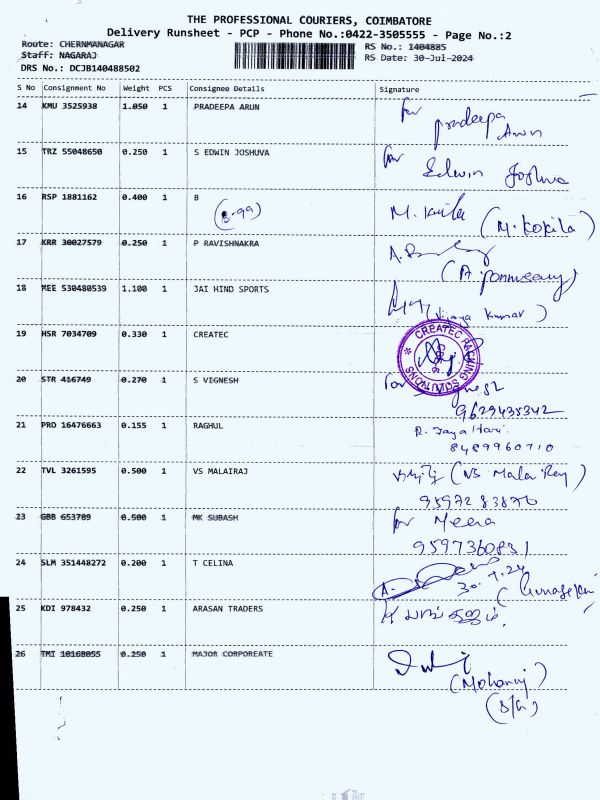 THE PROFESSIONAL COURIERS, COIMBATORE
Delivery Runsheet - PCP - Phone No.:0422-3505555 - Page No.:2
Route: CHERNMANAGAR RS No.: 1404885
Staff: NAGARAJ RS Date: 30-Jul-2024
DRS No.: DCJB140488502
S No Consignment No Weight PCS Consignee Details Signature
14 KMU 3525938 1.050 1 PRADEEPA ARUN for pradeepa
Arun
15 TRZ 55048650 0.250 1 S EDWIN JOSHUVA for Edwin Joshua
16 RSP 1881162 0.400 1 B (B-99) (M. Kokila)
17 KRR 30027579 0.250 1 P RAVISHNAKRA
18 MEE 530480539 1.100 1 JAI HIND SPORTS (Vijaya Kumar)
19 HSR 7034709 0.330 1 CREATEC CREATEC PACKING SOLUTIONS
20 STR 416749 0.270 1 S VIGNESH for
9629435342
21 PRO 16476663 0.155 1 RAGHUL R. Jaya Hari
8489960710
22 TVL 3261595 0.500 1 VS MALAIRAJ (VS Malai Raj)
9597283876
23 GBB 653789 0.500 1 MK SUBASH for Meera
9597360831
24 SLM 351448272 0.200 1 T CELINA 30.7.24
25 KDI 978432 0.250 1 ARASAN TRADERS
26 TMI 10168055 0.250 1 MAJOR CORPOREATE
(Mohanraj)
(S/G)